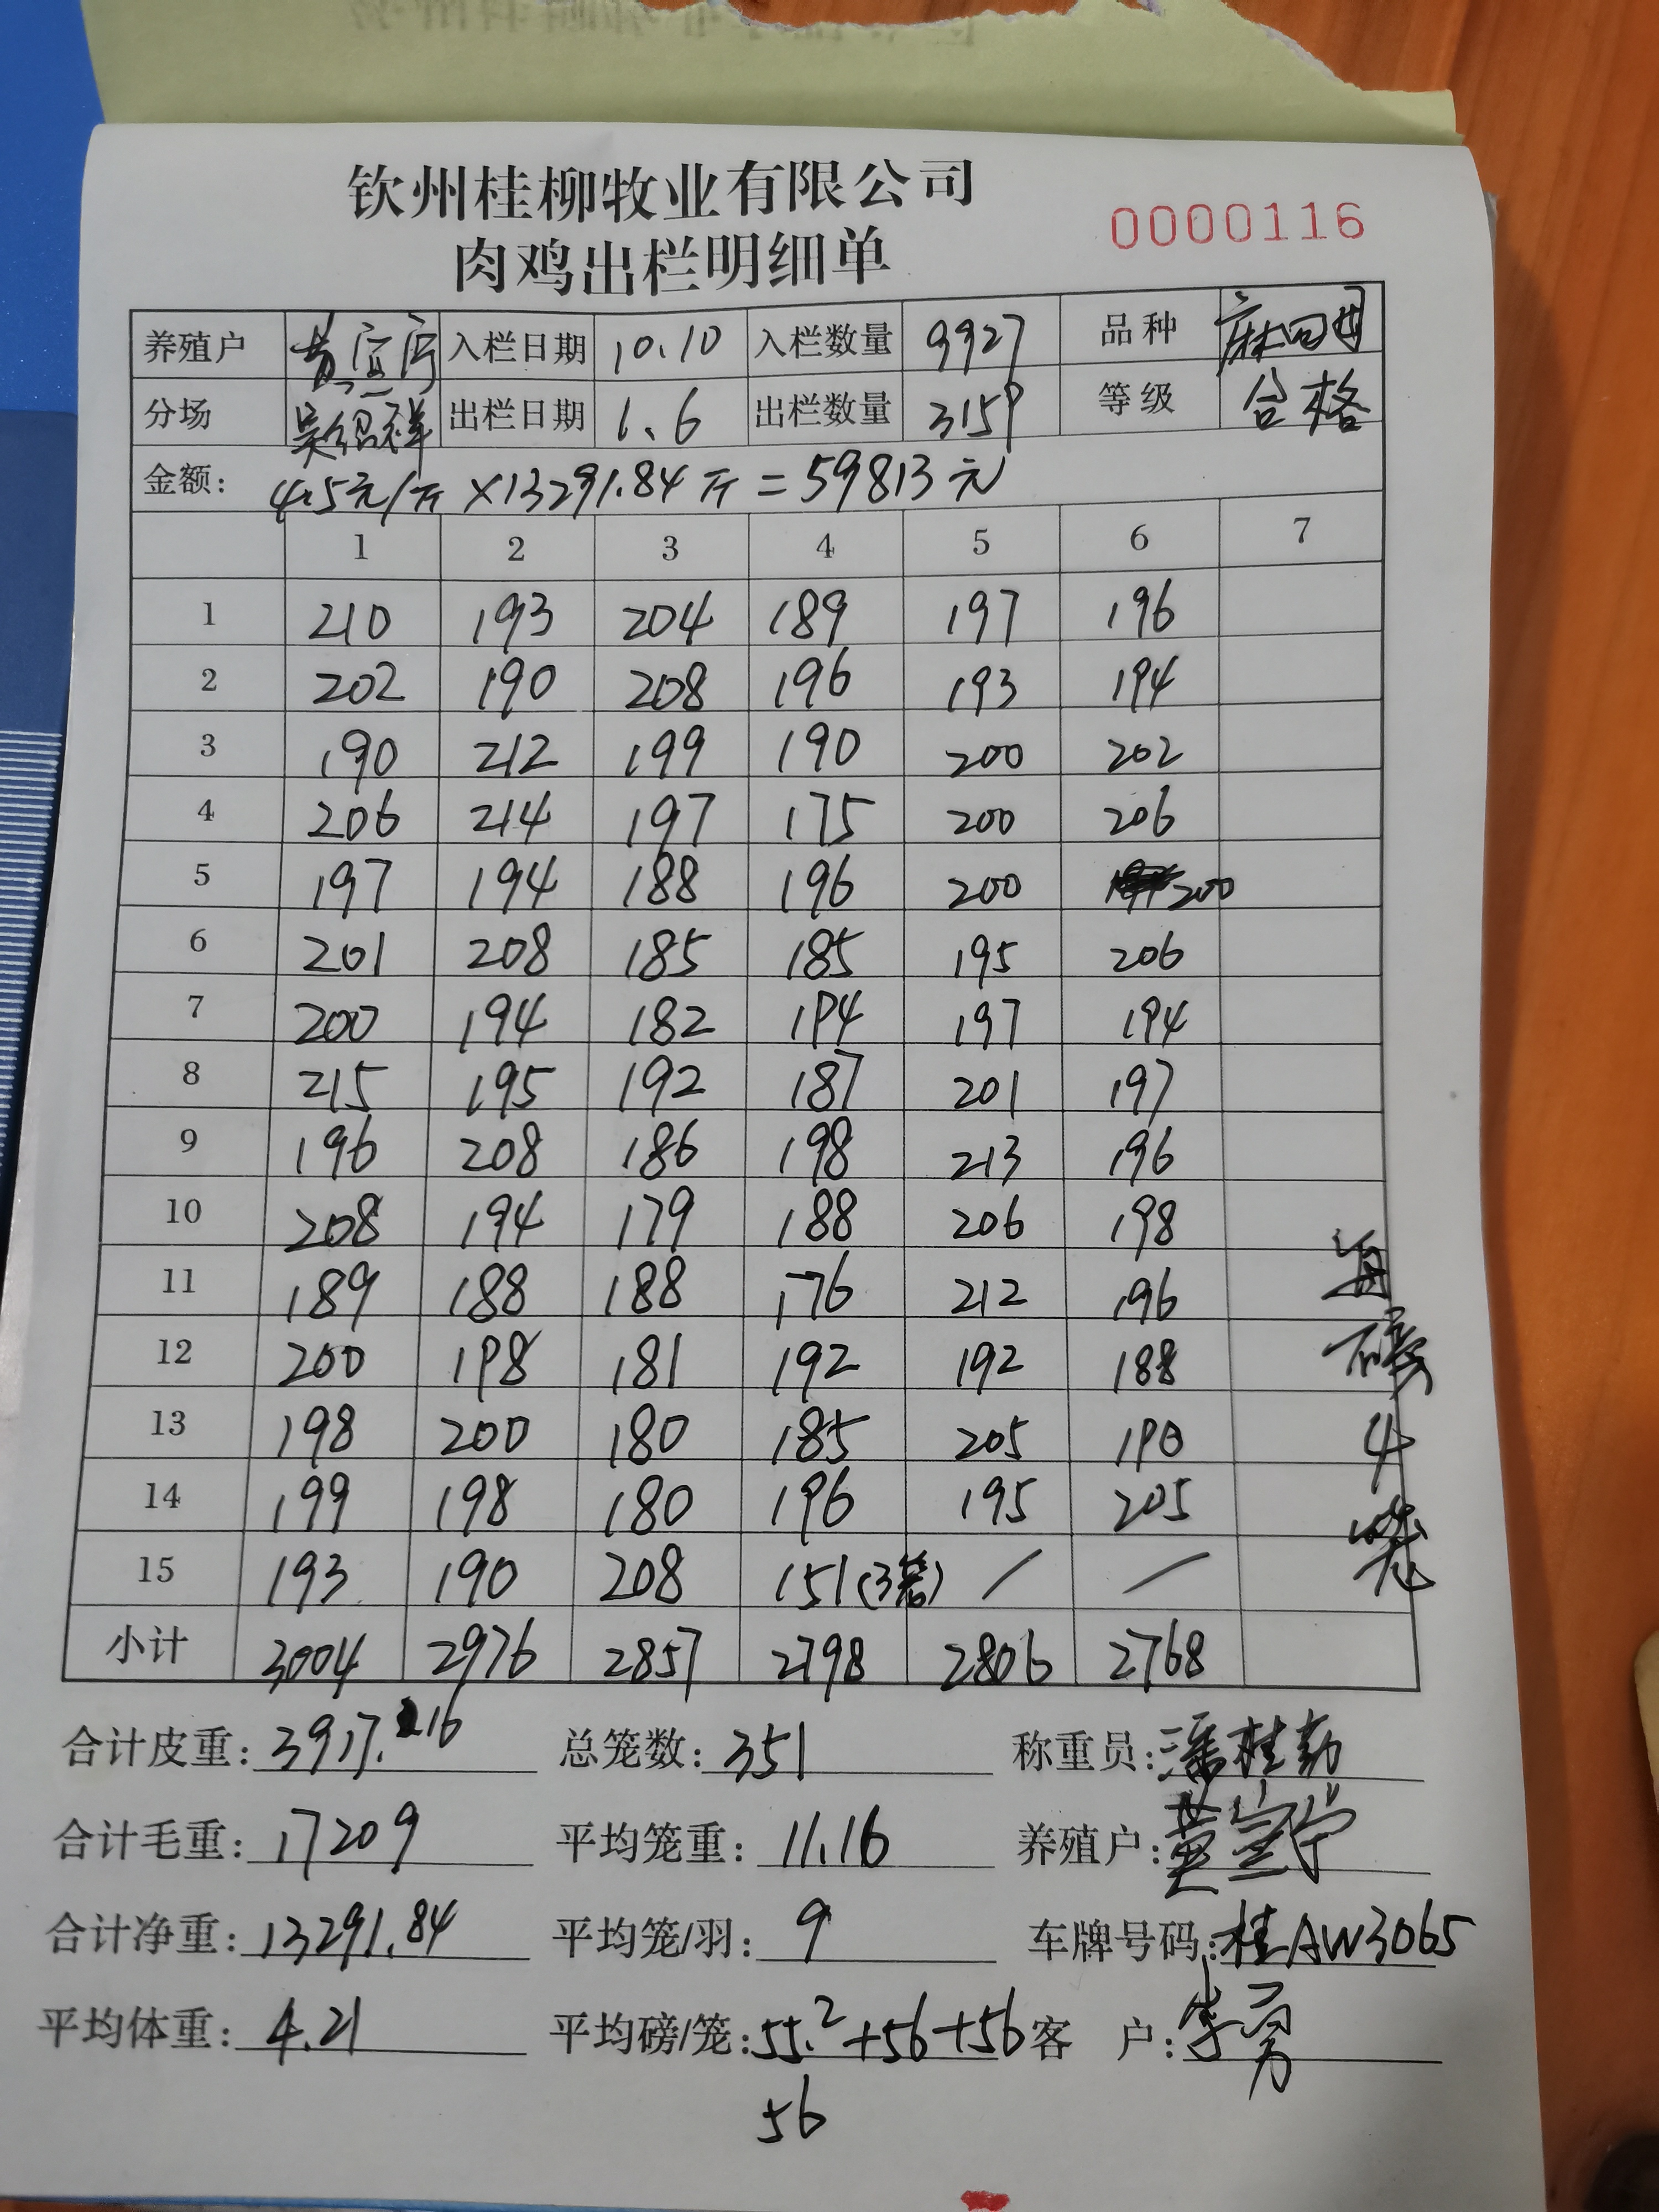 钦州桂柳牧业有限公司
肉鸡出栏明细单
0000116
养殖户 黄宜宁 入栏日期 10.10 入栏数量 9927 品种
分场 吴绍祥 出栏日期 1.6 出栏数量 3159 等级 合格
金额: 4.5元/斤 ×13291.84斤 = 59813元
1 2 3 4 5 6 7
1 210 193 204 189 197 196
2 202 190 208 196 193 194
3 190 212 199 190 200 202
4 206 214 197 175 200 206
5 197 194 188 196 200 200
6 201 208 185 185 195 206
7 200 194 182 194 197 194
8 215 195 192 187 201 197
9 196 208 186 198 213 196
10 208 194 179 188 206 198
11 189 188 188 176 212 196
12 200 198 181 192 192 188
13 198 200 180 185 205 190
14 199 198 180 196 195 205
15 193 190 208 151(3笼) / /
每磅4笼
小计 3004 2976 2857 2798 2806 2768
合计皮重: 3917.16 总笼数: 351 称重员: 潘桂勤
合计毛重: 17209 平均笼重: 11.16 养殖户: 黄宜宁
合计净重: 13291.84 平均笼/羽: 9 车牌号码: 桂AW3065
平均体重: 4.21 平均磅/笼: 55.2+56+56 客 户: 李勇
56